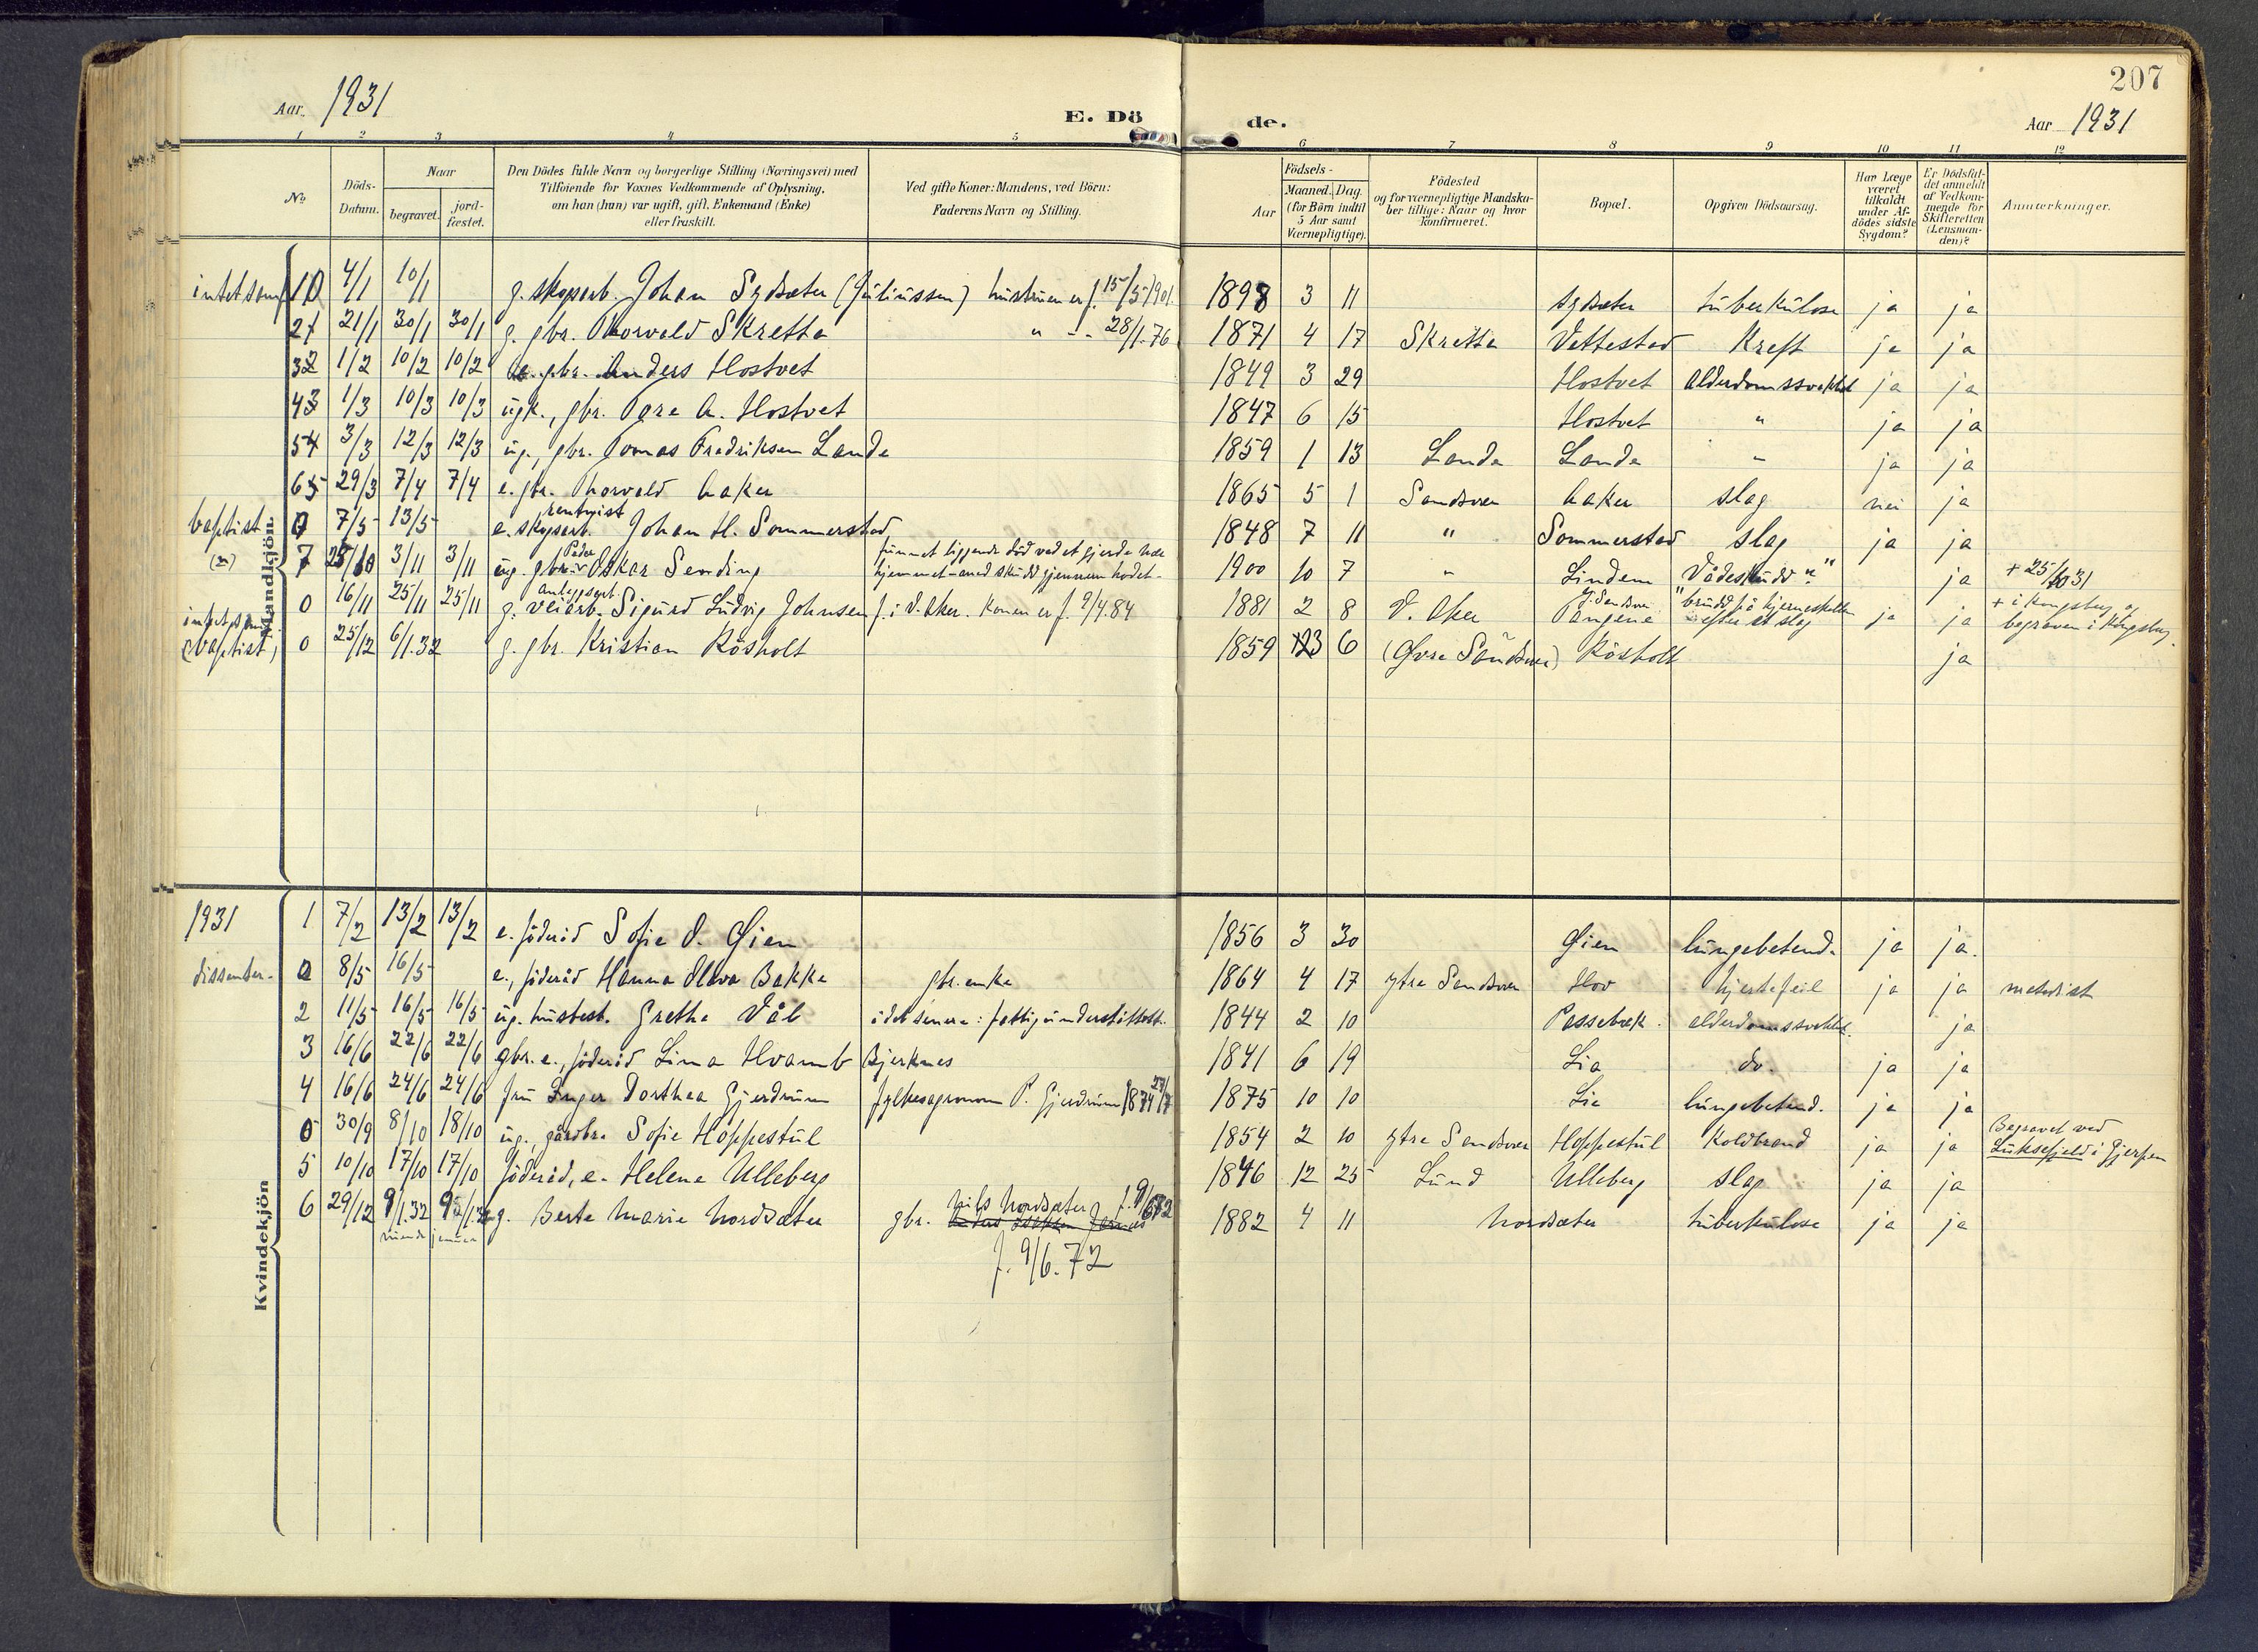 207
Aar 1931 E. Dö de. Aar 1931
1 2 3 4 5 6 7 8 9 10 11 12
No. Döds-Datum. Naar begravet. jord-fæstet. Den Dödes fulde Navn og borgerlige Stilling (Næringsvei) med Tilföiende for Voxnes Vedkommende af Oplysning, om han (hun) var ugift, gift, Enkemand (Enke) eller fraskilt. Ved gifte Koner: Mandens, ved Börn: Faderens Navn og Stilling. Födsels- Aar Maaned. Dag. (for Börn indtil 5 Aar samt Værnepligtige). Födested og for værnepligtige Mandskaber tillige: Naar og hvor konfirmeret. Bopæl. Opgiven Dödsaarsag. Har Læge været tilkaldt under Afdödes sidste Sygdom? Er Dödsfaldet anmeldt af Vedkommende for Skifteretten (Lensmanden)? Anmærkninger.
Mandkjön
intet samf. 0 4/1 10/1 g. skogsarb. Johan Sydsæter (Juliussen) hustruen er f. 15/5 1901 1898 3 11 Sydsæter tuberkulose ja ja
1 21/1 30/1 30/1 g. gbr. Thorvald Skretta " - - 28/1.76 1871 4 17 Skretta Vettestad Kreft ja ja
2 1/2 10/2 10/2 e. gbr. Anders Hostvet 1849 3 29 Hostvet alderdomssvakhet ja ja
3 1/3 10/3 10/3 ugk., gbr. Tore A. Hostvet 1847 6 15 Hostvet " ja ja
4 3/3 12/3 12/3 ug., gbr. Tomas Fredriksen Lande 1859 1 13 Lande Lande " ja ja
5 29/3 7/4 7/4 e. gbr. Thorvald Aaker 1865 5 1 Sandsver Aaker slag nei ja
rentnist
baptist 0 7/5 13/5 e. skogsarb. Johan H. Sommerstad 1848 7 11 " Sommerstad slag ja ja
7 25/10 3/11 3/11 ug. gbr. Peder Oskar Sending funnet liggende död ved et gjerde nær hjemmet - med skudd gjennem hodet - 1900 10 7 " Lindem "Vådeskudd"? ja + 25/10 31
0 16/11 25/11 25/11 g. Anleggsarb. veiarb. Sigurd Ludvig Johnsen f. i V. Aker. Konen er f. 9/4.84 1881 2 8 V. Aker "brudd på hjerneskallen efter et slag ja ja + i Kongsberg og begraven i Kongsberg.
(baptist) 0 25/12 6/1.32 g. gbr. Kristian Rösholt 1859 6 (Övre Sandsver) Rösholt ja
Kvindekjön
1931 1 7/2 13/2 13/2 e. föderåd Sofie O. Öien 1856 3 30 Öien lungebetend. ja ja.
dissenter- 0 8/5 16/5 e., föderåd Hanna Olava Bakke gbr. enke 1864 4 17 ytre Sandsver Hov hjertefeil ja ja metodist
2 11/5 16/5 16/5 ug. husbest. Grethe Våle i det senere: fattigunderstöttet. 1844 2 10 Passebæk alderdomssvakhet. ja
3 16/6 22/6 22/6 gbr. e., föderåd Lina Hvamb Bjerknes 1841 6 19 Lia do. ja ja
4 16/6 24/6 24/6 fru Inger Dorthea Gjerdrum fylkesagronom P. Gjerdrum 1875 10 10 Lie lungebetend. ja ja
0 30/9 8/10 18/10 ug., gårdbr. Sofie Hoppestul 1854 2 10 ytre Sandsver Hoppestul Koldbrand ja ja Begravet ved Luksefjeld i Gjerpen
5 10/10 17/10 17/10 föderåd, e. Helene Ulleberg 1846 12 25 Lund Ulleberg slag ja ja
6 29/12 9/1.32 9/1.32 g. Berte Marie Nordsæter gbr. Nils Nordsæter 1882 4 11 Nordsæter tuberkulose ja ja
niende januar
f. 9/6.72